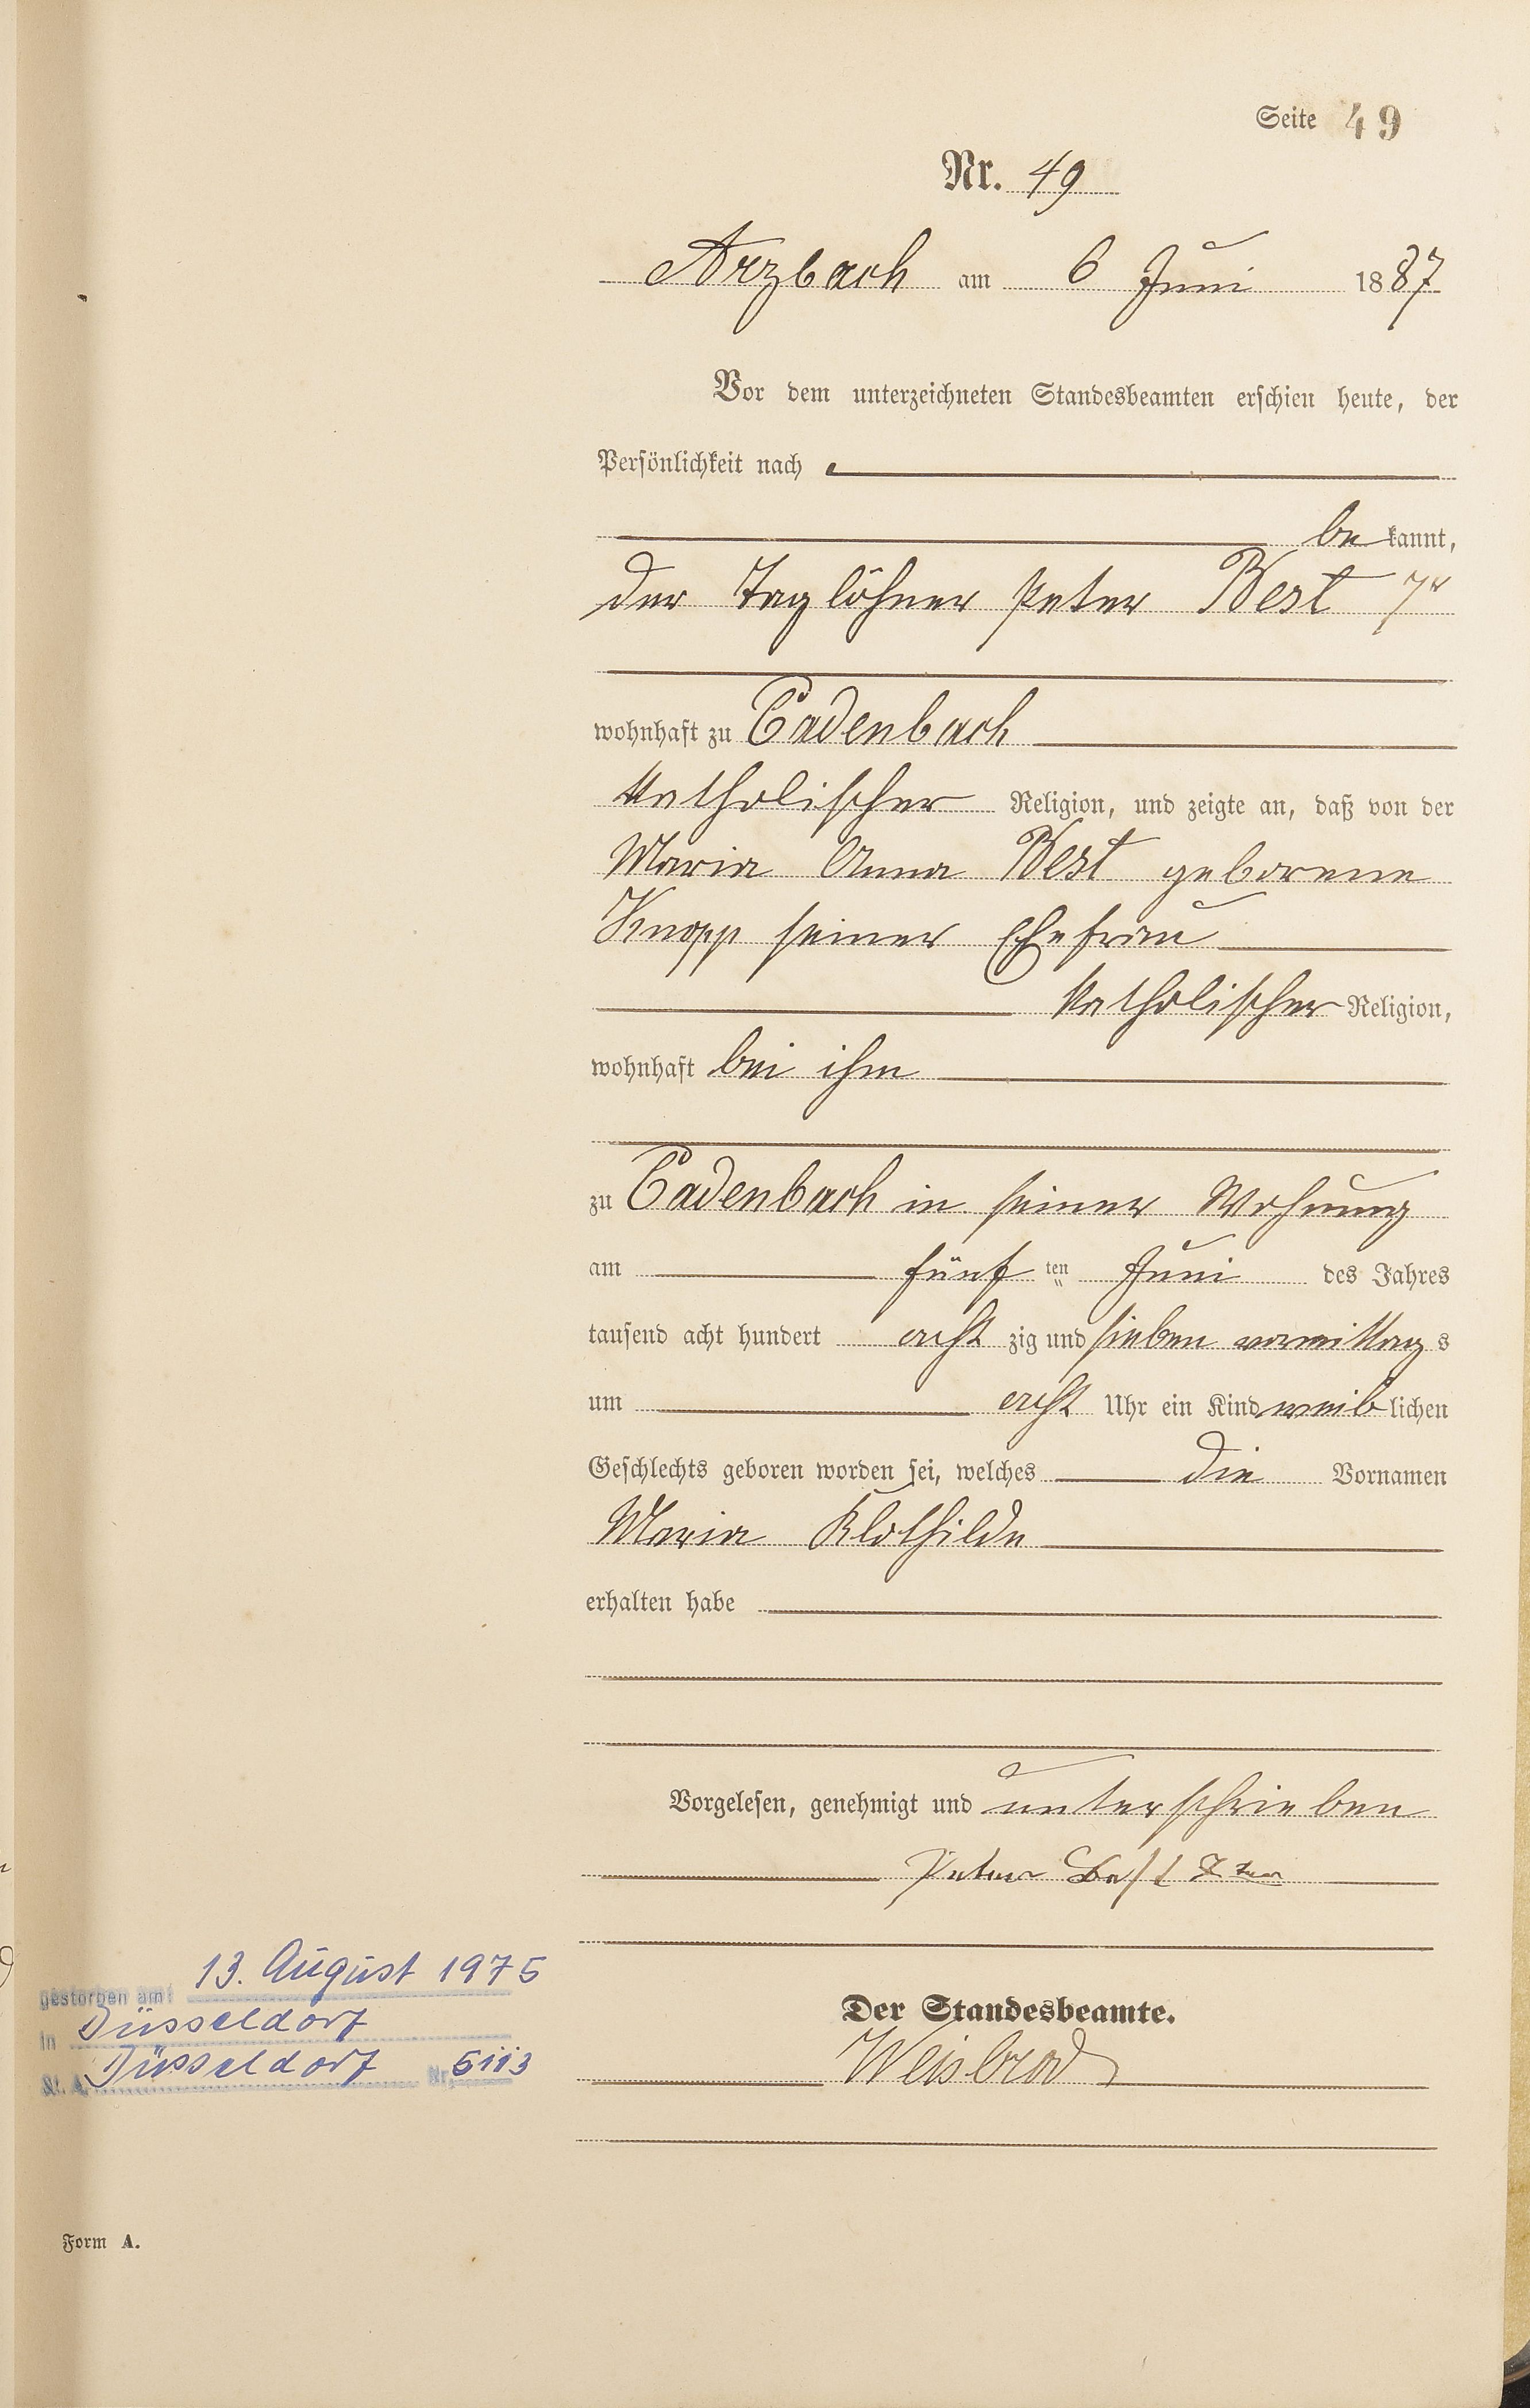 Seite 49
Nr. 49
Arzbach am 6 Juni 1887
Vor dem unterzeichneten Standesbeamten erschien heute, der
Persönlichkeit nach
be kannt,
der Taglöhner Peter Best 7r
wohnhaft zu Cadenbach
katholischer Religion, und zeigte an, daß von der
Maria Anna Best geborene
Knopp seiner Ehefrau
katholischer Religion,
wohnhaft bei ihm
zu Cadenbach in seiner Wohnung
am fünf ten Juni des Jahres
tausend acht hundert acht zig und sieben vormittag s
um acht Uhr ein Kind weib lichen
Geschlechts geboren worden sei, welches die Vornamen
Maria Klothilde
erhalten habe
Vorgelesen, genehmigt und unterschrieben
Peter Best 7ter
Der Standesbeamte.
Weisbrod
gestorben am: 13. August 1975
in Düsseldorf
St. A. Düsseldorf Nr. 5113
Form A.